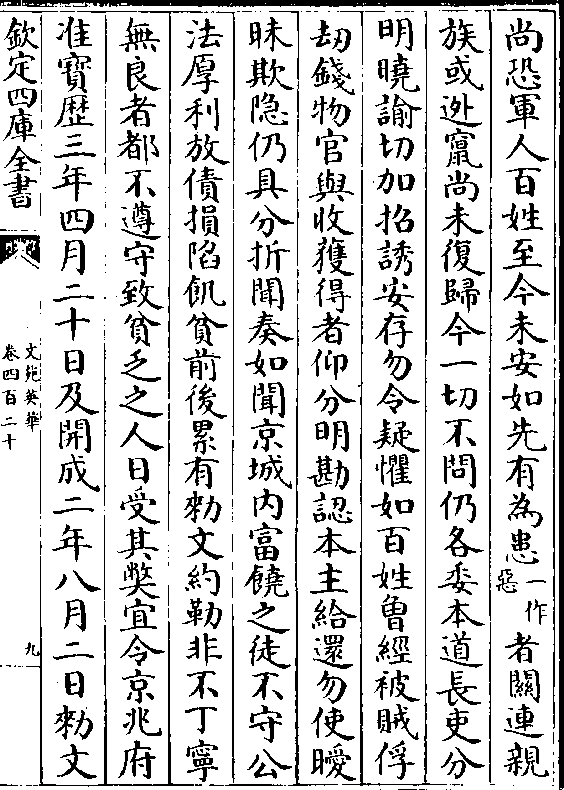 尚恐軍人百姓至今未安如先有為患一作惡者關連親
族或迯竄尚未復歸今一切不問仍各委本道長吏分
明曉諭切加招誘安存勿令疑懼如百姓曾經被賊俘
刧錢物官與收獲得者仰分明勘認本主給還勿使曖
昧欺隐仍具分折聞奏如聞京城内富饒之徒不守公
法厚利放債損陷飢貧前後累有勑文約勒非不丁寧
無良者都不遵守致貧乏之人日受其獘宜令京兆府
准寳歴三年四月二十日及開成二年八月二日勑文
欽定四庫全書
文苑英華
卷四百二十
九